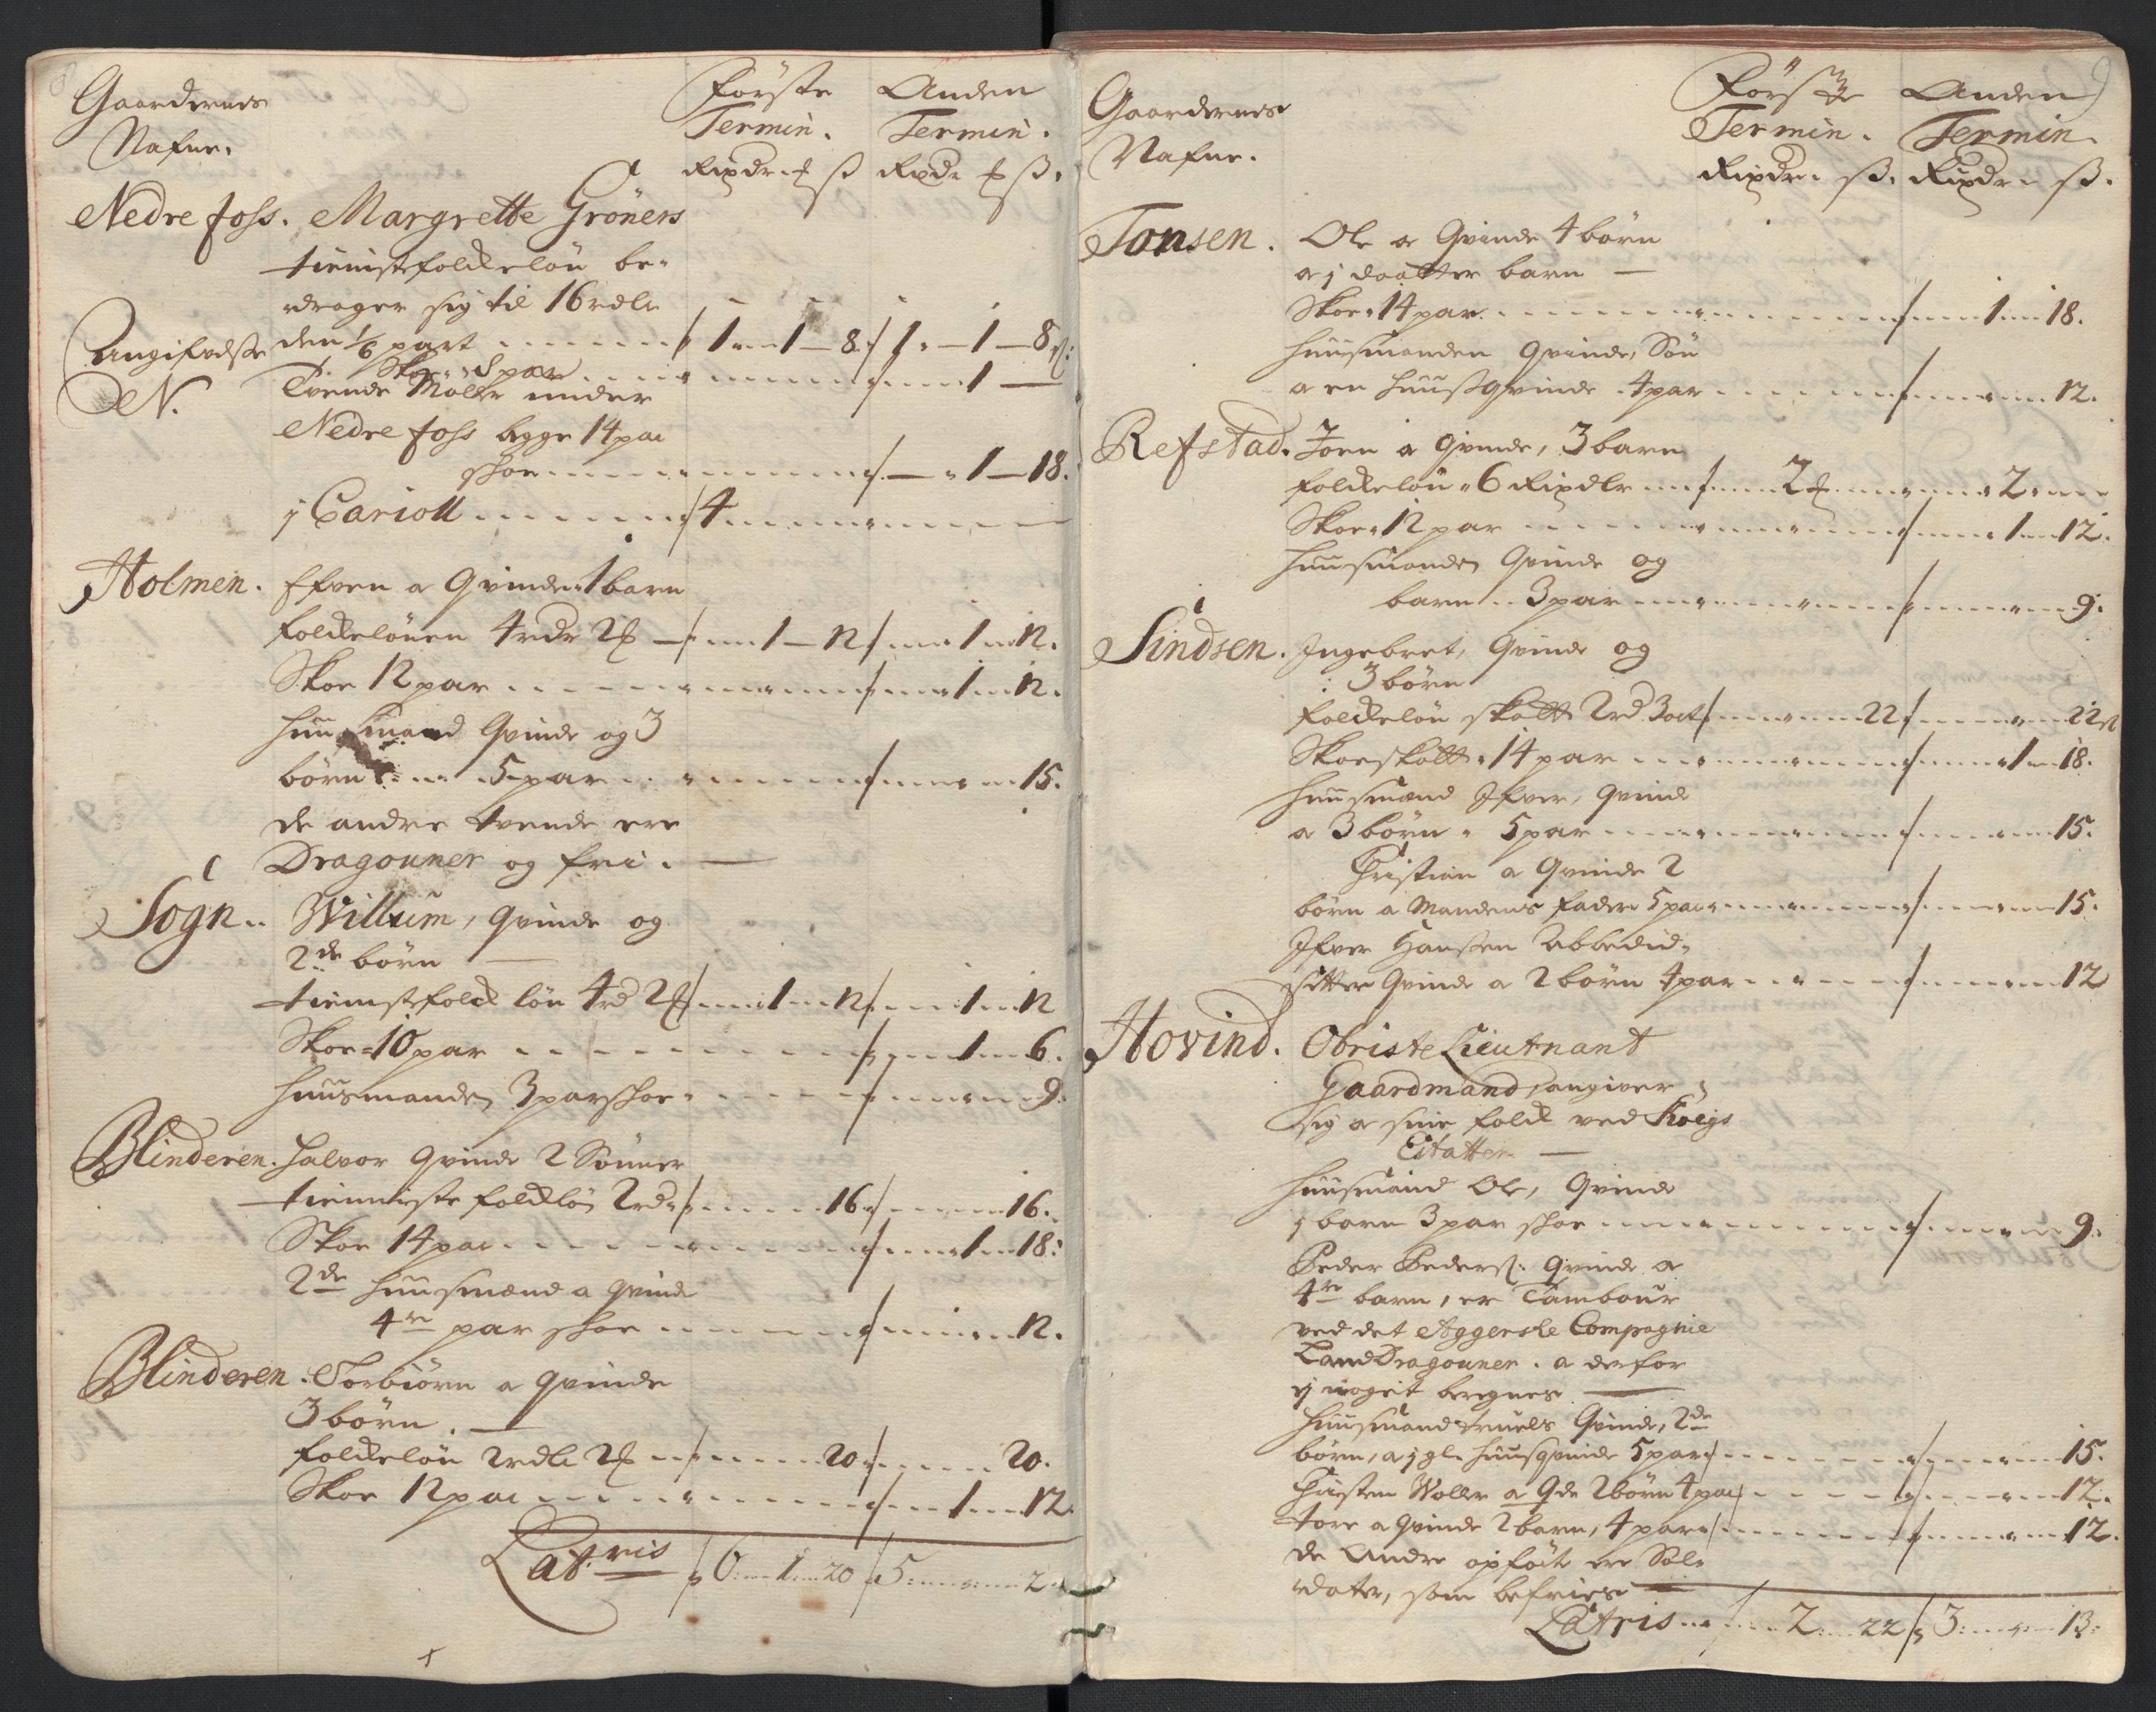 8
Gaardernes Nafne.
Første Termin.
Anden Termin.
Rixdr ß
Rixdr ß.
Nedre Foss. Margrette Grøners
tienistefolckeløn be-
drager sig til 16 rdlr
Angifvelse den 1/6 part 1 1 8 1 1 8 ß:
N. Skoe 8 par 1
Tvende Møller under
Nedre Foss begge 14 par
skoe 1 18.
j Cariott 4
Holmen. Efven a Qvinde 1 barn
folckelønen 4 rdr 1 12 1 12.
Skoe 12 par 1 12.
Huusmand Qvinde og 3
børn 5 par 15.
de andre tvende ere
Dragouner og fri.
Sogn. Willum, Qvinde og
2de børn
tienistefolck løn 4 rd 1 12 1 12
Skoe 10 par 1 6.
Huusmanden 3 par skoe 9.
Blinderen. Halvor Qvinde 2 Sønner
tienniste folckløn 2 rd 16 16.
Skoe 14 par 1 18.
2de Huusmænd a Qvinde
4re par skoe 12.
Blinderen. Torbiørn a Qvinde
3 børn.
folckeløn 2 rdlr 20 20.
Skoe 12 par 1 12.
Lat:ris 6 1 20 5 2
9
Gaardernes Nafne.
Første Termin.
Anden Termin.
Rixdr ß.
Rixdr ß.
Tonsen. Ole a Qvinde 4 børn
a j daatter barn
Skoe 14 par 1 18.
Huusmanden Qvinde, Søn
a en Huusqvinde 4 par 12.
Refstad. Joen a Qvinde, 3 barn
folckeløn 6 Rixdlr 2 2
Skoe 12 par 1 12.
Huusmanden Qvinde og
barn 3 par 9.
Sindsen. Ingebret, Qvinde og
3 børn
folckeløn skatt 2 rd 3 ort 22 22 ß
Skoeskatt 14 par 1 18.
Huusmand Ifver, Qvinde
a 3 børn 5 par 15.
Christian a Qvinde 2
børn a Mandens fader 5 par 15.
Ifver Hansen
sitter Qvinde a 2 børn 4 par 12
Hovind. Obriste Lieutnant
Gaardmand, angiver
sig a sine folck ved Krigs
Etatten
Huusmand Ole, Qvinde
j barn 3 par skoe 9.
Peder Peders: Qvinde a
4re barn, er Tambour
ved det Aggerske Compagnie
Land Dragouner. a derfor
ej noget beregnes
Huusmand Truels Qvinde, 2de
børn, a j gl. Huusqvinde 5 par 15.
Christen Woller a Qde 2 børn 4 par 12.
Tore a Qvinde 2 barn, 4 par 12.
de Andre opførte ere Sol-
dater, som befries
Latris 2 22 3 13.